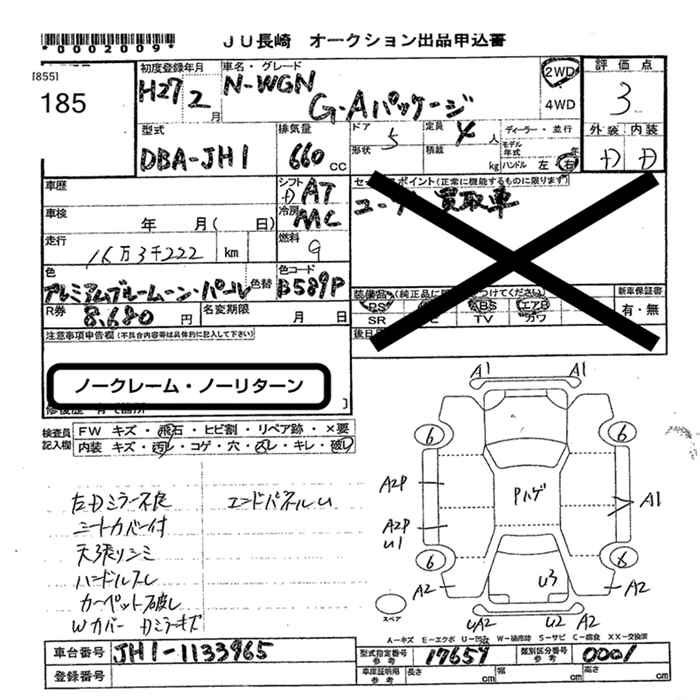 *0002009* JU長崎 オークション出品申込書
[855]
185
初度登録年月 車名・グレード 評価点
H27 2月 N-WGN G・Aパッケージ 2WD 4WD 3
型式 排気量 ドア 定員 ディーラー・並行 外装 内装
DBA-JH1 660 CC 5 4人 モデル年式 年
形状 積載 kg ハンドル 左 右 D D
車歴 シフト AT セールスポイント(正常に機能するものに限ります)
冷房 MC ユーザー買取車
車検 年 月( 日)
走行 16万3千222 km 燃料 9
色 プレミアムブルームーン・パール 色替 色コード B589P
装備品 (純正品に つけてください) 新車保証書
PS ABS エアB 有・無
SR TV カワ
R券 8,680円 名変期限 月 日
後日
注意事項申告欄(不具合内容等は具体的に記入して下さい)
ノークレーム・ノーリターン
検査員記入欄 FW キズ・飛石・ヒビ割・リペア跡・×要
内装 キズ・汚レ・コゲ・穴・スレ・キレ・破レ
左Dミラー不良 エンドパネルU
シートカバー付
天張りシミ
ハンドルスレ
カーペット破レ
Wカバー Dミラーキズ
A1 A1
6 6
A2P Pハゲ A1
A2P U1
6 6
A2 U3 A2
UA2 U2 A2
スペア
A-キズ E-エクボ U-凹み W-補修跡 S-サビ C-腐食 XX-交換済
車台番号 JH1-1133965 型式指定番号 参考 17659 類別区分番号 参考 0001
登録番号 車庫証明用 参考 長さ cm 幅 cm 高さ cm